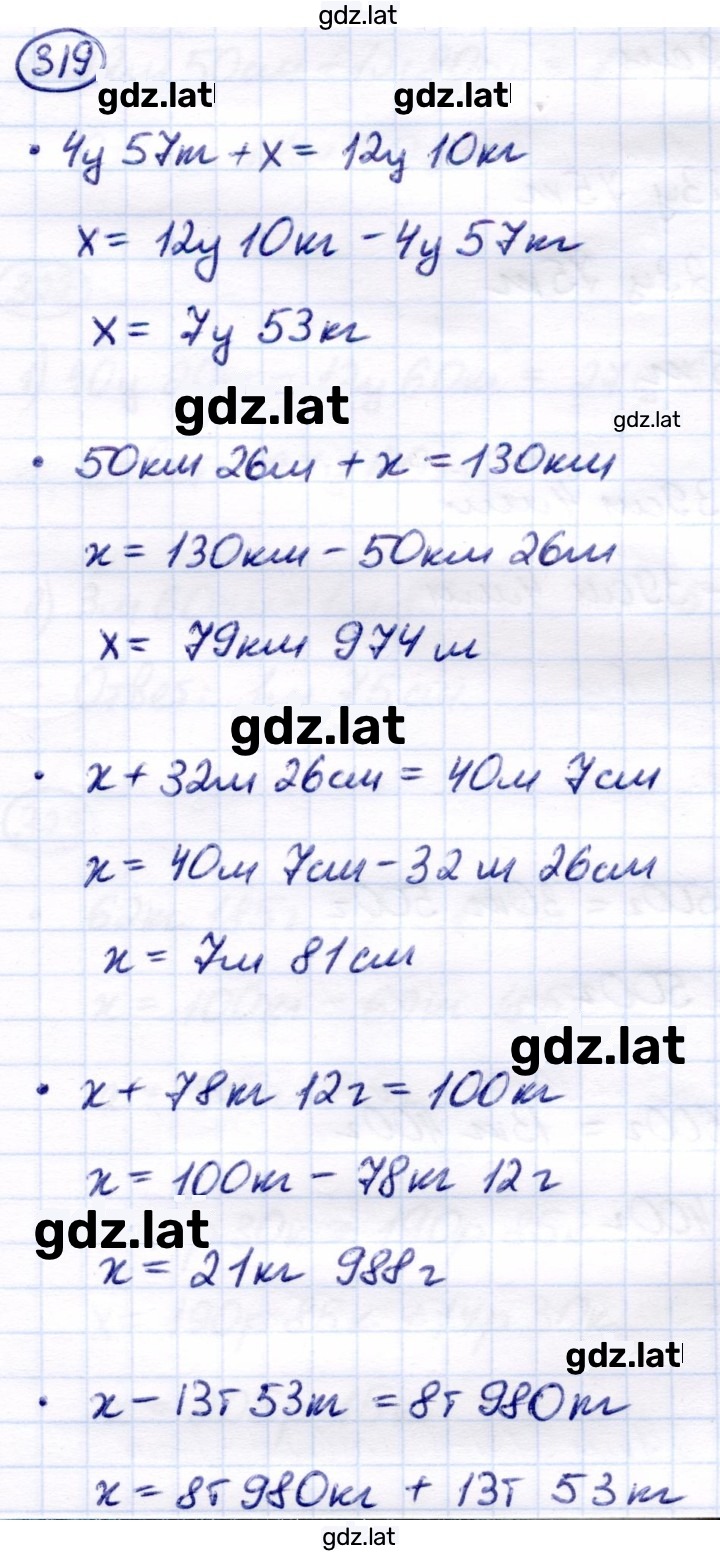 gdz.lat
319
gdz.lat gdz.lat
• 4ц 57кг + x = 12ц 10кг
x = 12ц 10кг - 4ц 57кг
x = 7ц 53кг
gdz.lat gdz.lat
• 50км 26м + x = 130км
x = 130км - 50км 26м
x = 79км 974м
gdz.lat
• x + 32м 26см = 40м 7см
x = 40м 7см - 32м 26см
x = 7м 81см
gdz.lat
• x + 78кг 12г = 100кг
x = 100кг - 78кг 12г
gdz.lat
x = 21кг 988г
gdz.lat
• x - 13т 53кг = 8т 980кг
x = 8т 980кг + 13т 53кг
gdz.lat